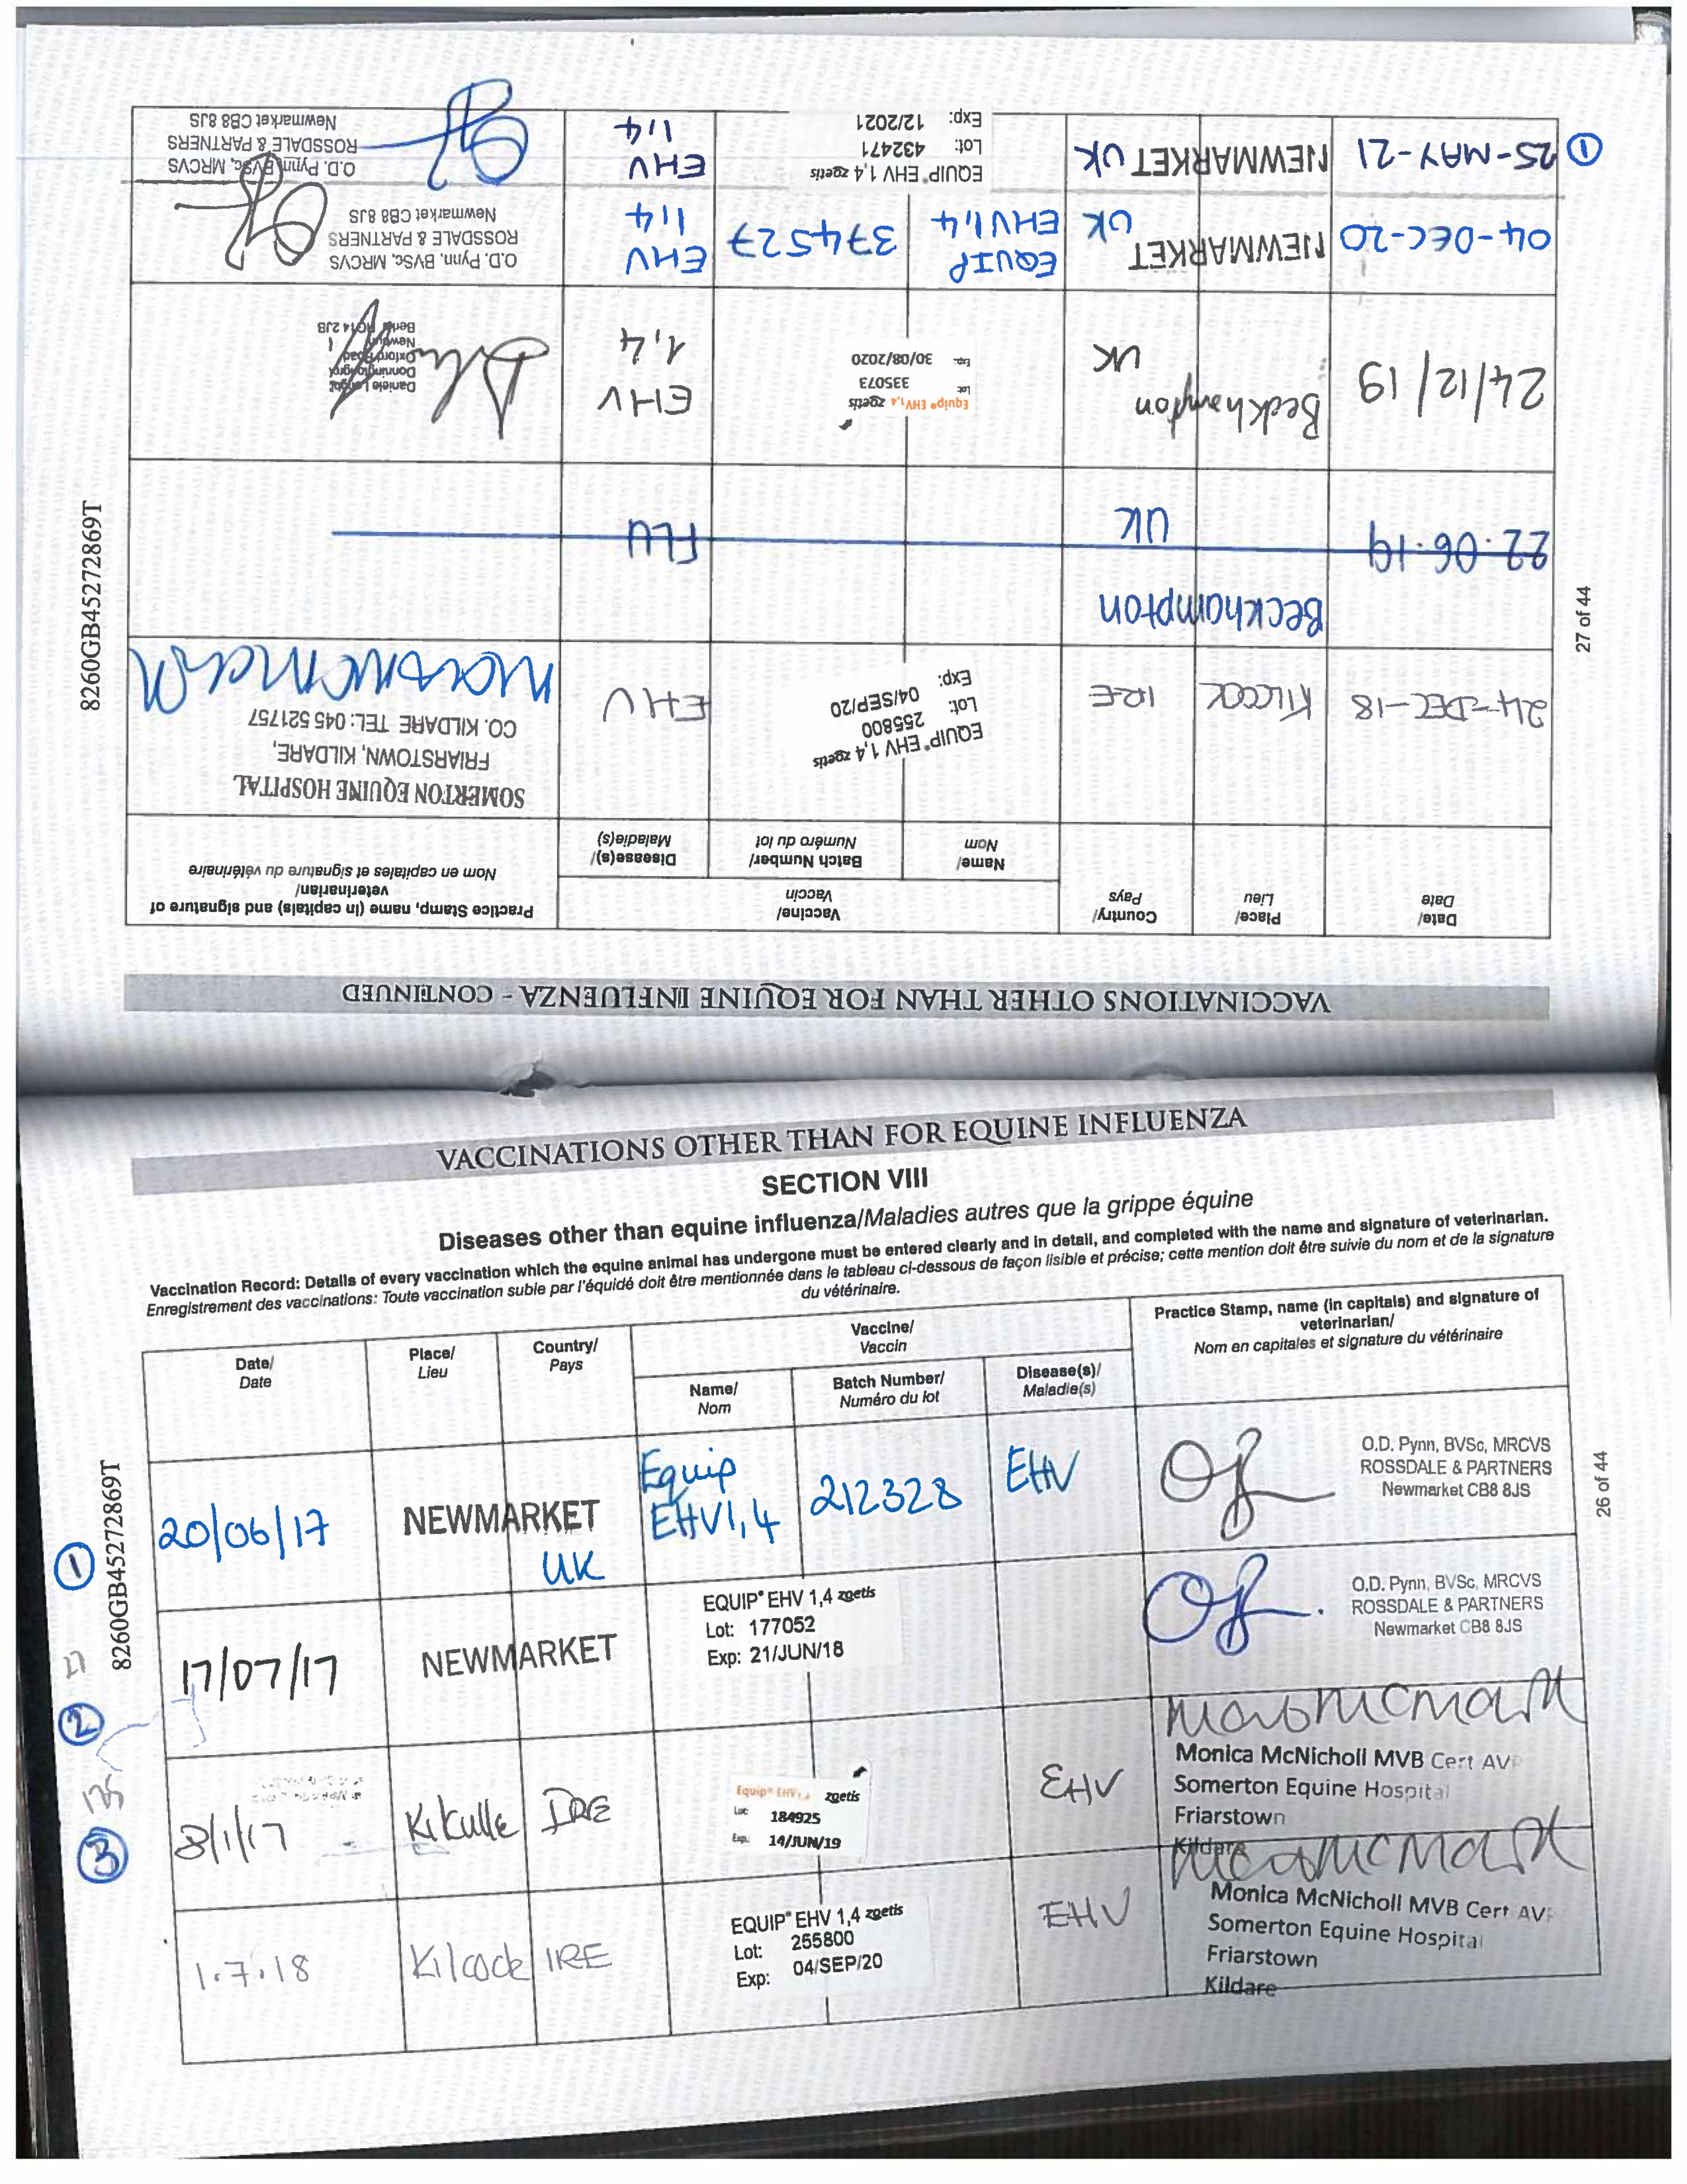 VACCINATIONS OTHER THAN FOR EQUINE INFLUENZA
SECTION VIII
Diseases other than equine influenza/Maladies autres que la grippe équine
Vaccination Record: Details of every vaccination which the equine animal has undergone must be entered clearly and in detail, and completed with the name and signature of veterinarian.
Enregistrement des vaccinations: Toute vaccination subie par l'équidé doit être mentionnée dans le tableau ci-dessous de façon lisible et précise; cette mention doit être suivie du nom et de la signature
du vétérinaire.
Date/
Date
Place/
Lieu
Country/
Pays
Vaccine/
Vaccin
Name/
Nom
Batch Number/
Numéro du lot
Disease(s)/
Maladie(s)
Practice Stamp, name (in capitals) and signature of
veterinarian/
Nom en capitales et signature du vétérinaire
1
20/06/17
NEWMARKET
UK
Equip
EHV1,4
212328
EHV
O.D. Pynn, BVSc, MRCVS
ROSSDALE & PARTNERS
Newmarket CB8 8JS
2
17/07/17
NEWMARKET
EQUIP® EHV 1,4 zoetis
Lot: 177052
Exp: 21/JUN/18
O.D. Pynn, BVSc, MRCVS
ROSSDALE & PARTNERS
Newmarket CB8 8JS
3
8/1/17
IRE
Equip® EHV1,4 zoetis
Lot: 184925
Exp. 14/JUN/19
EHV
Monica McNicholl MVB Cert AVP
Somerton Equine Hospital
Friarstown
Kildare
1.7.18
Kilcock
IRE
EQUIP® EHV 1,4 zoetis
Lot: 255800
Exp: 04/SEP/20
EHV
Monica McNicholl MVB Cert AVP
Somerton Equine Hospital
Friarstown
Kildare
8260GB45272869T
26 of 44
VACCINATIONS OTHER THAN FOR EQUINE INFLUENZA - CONTINUED
Date/
Date
Place/
Lieu
Country/
Pays
Vaccine/
Vaccin
Name/
Nom
Batch Number/
Numéro du lot
Disease(s)/
Maladie(s)
Practice Stamp, name (in capitals) and signature of
veterinarian/
Nom en capitales et signature du vétérinaire
24-DEC-18
KILCOCK
IRE
EQUIP® EHV 1,4 zoetis
Lot: 255800
Exp: 04/SEP/20
EHV
SOMERTON EQUINE HOSPITAL
FRIARSTOWN, KILDARE,
CO. KILDARE TEL: 045 521757
22.06.19
Beckhampton
UK
FLU
24/12/19
Beckhampton
UK
Equip® EHV1,4 zoetis
Lot 335073
Exp. 30/08/2020
EHV
1,4
Oxford Road
04-DEC-20
NEWMARKET
UK
EQUIP
EHV1,4
374527
EHV
1,4
O.D. Pynn, BVSc, MRCVS
ROSSDALE & PARTNERS
Newmarket CB8 8JS
1
25-MAY-21
NEWMARKET UK
EQUIP® EHV 1,4 zoetis
Lot: 432471
Exp: 12/2021
EHV
1,4
O.D. Pynn, BVSc, MRCVS
ROSSDALE & PARTNERS
Newmarket CB8 8JS
8260GB45272869T
27 of 44